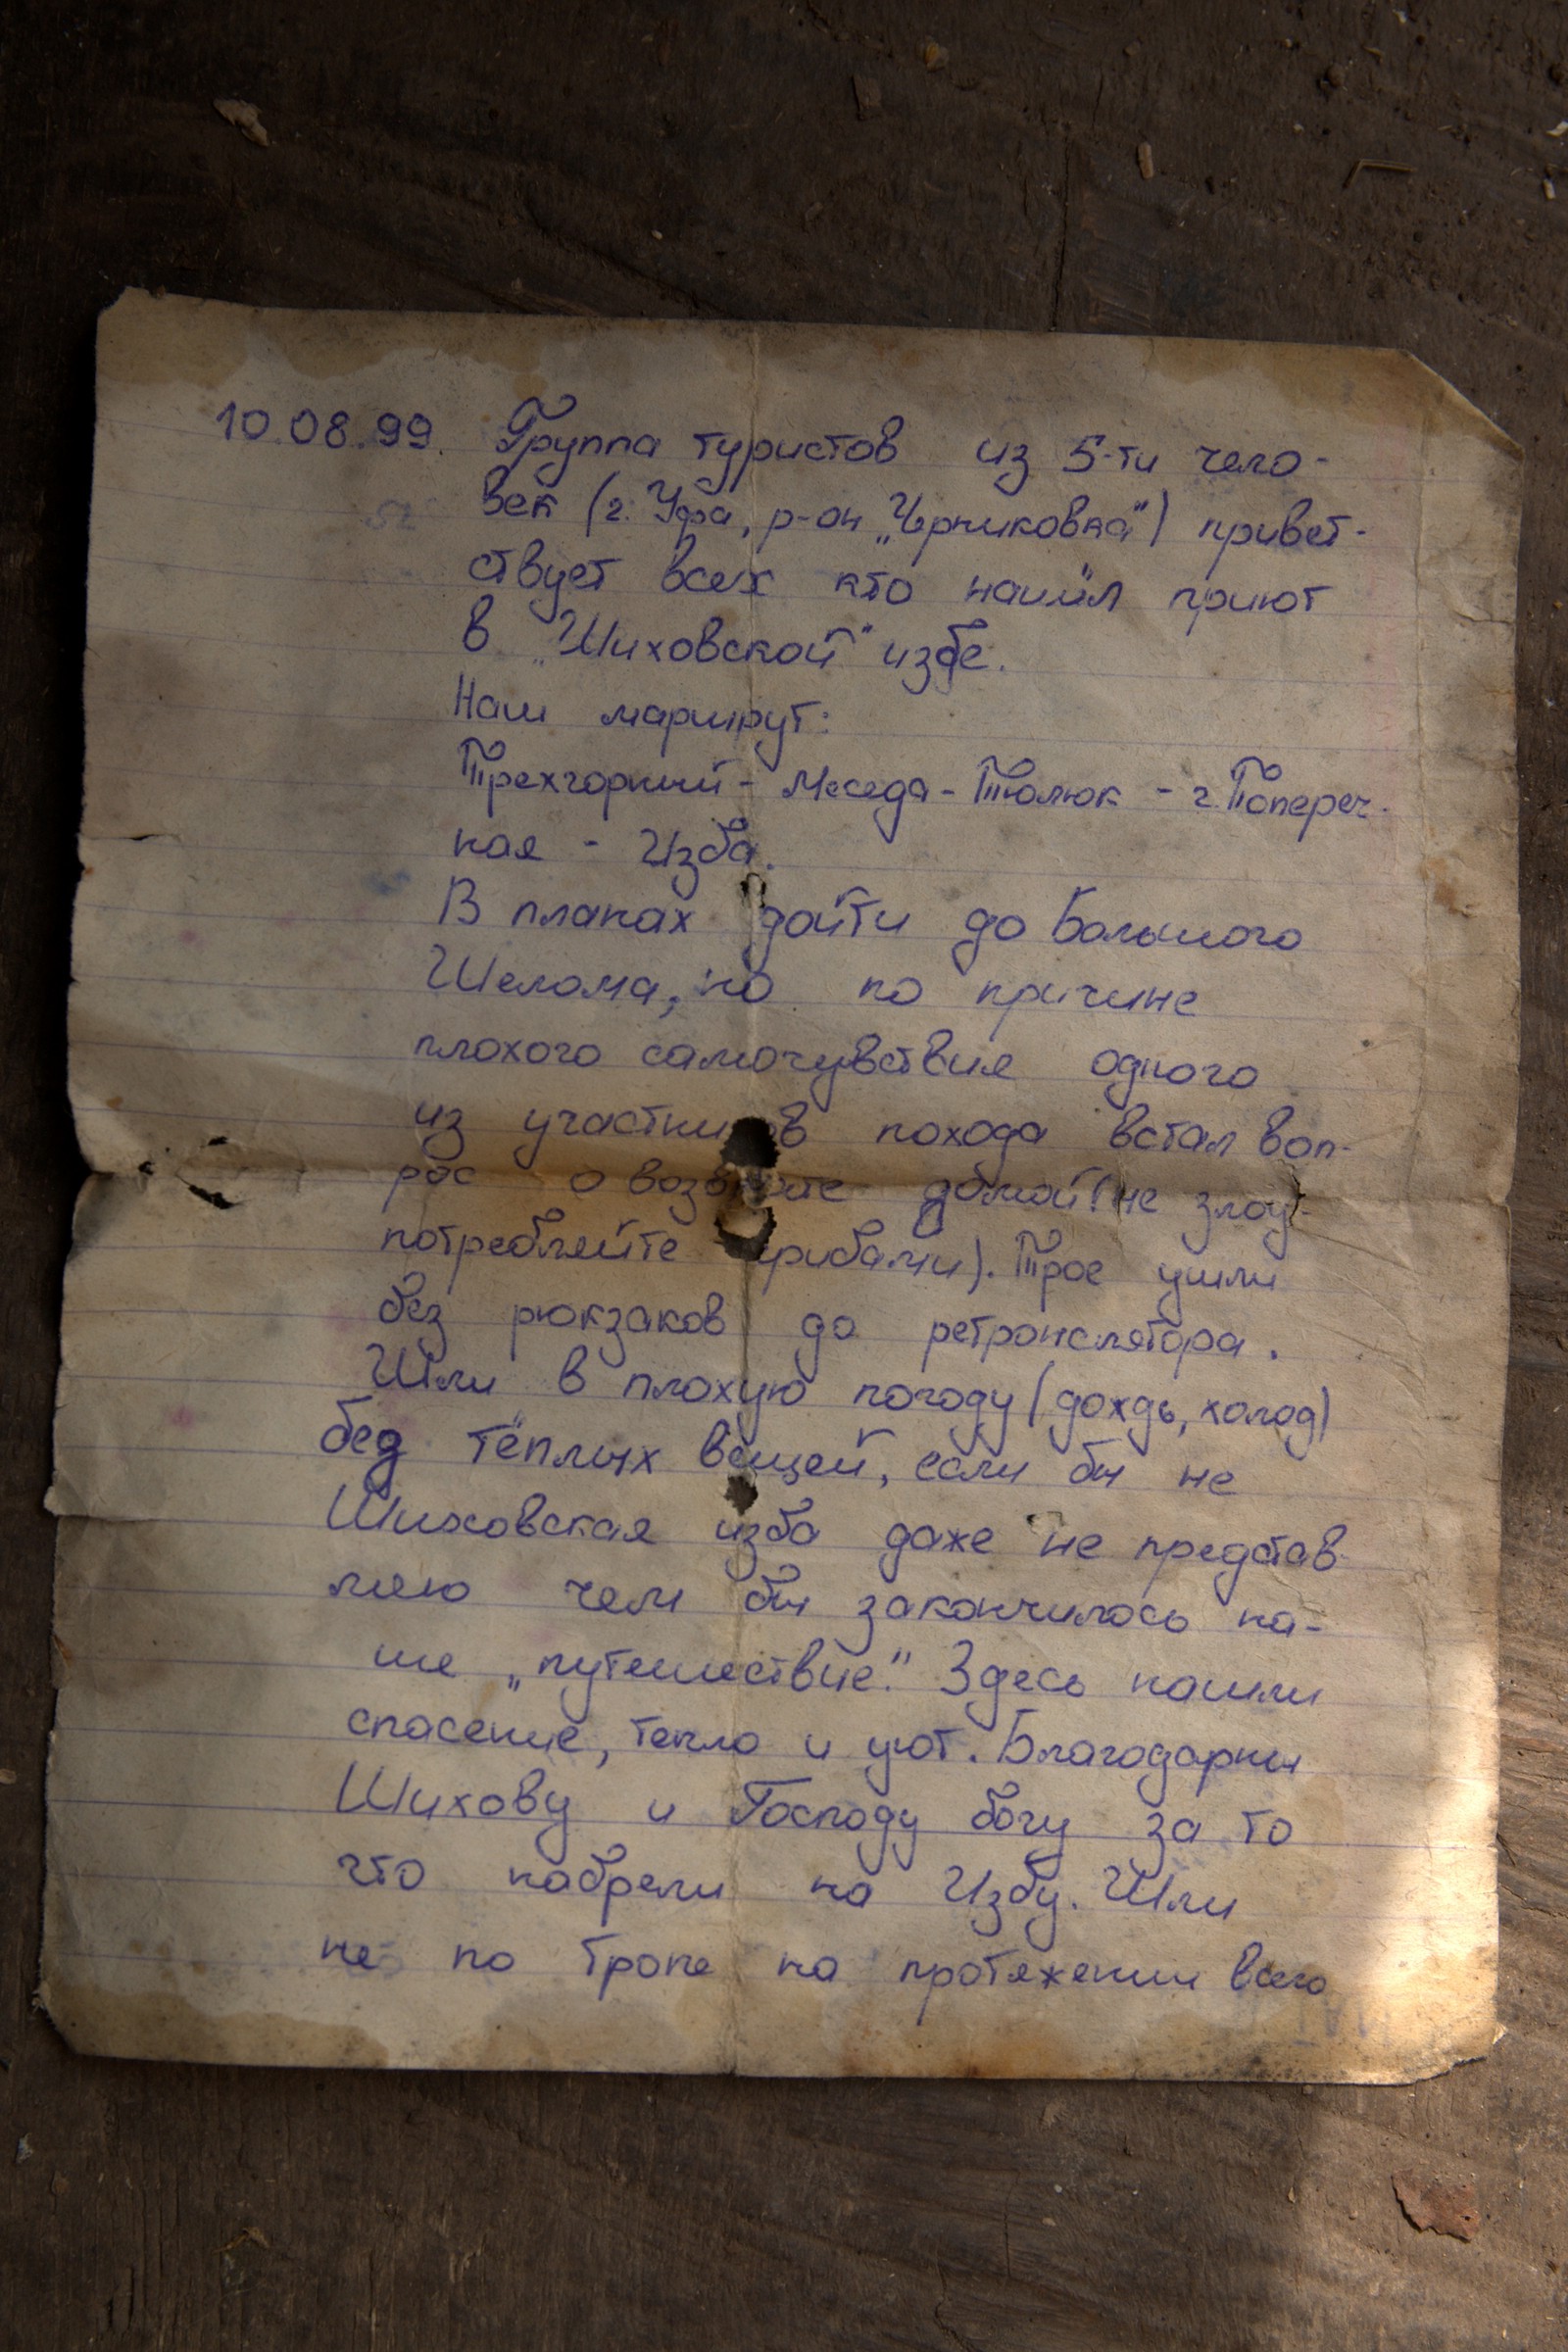 10.08.99. Группа туристов из 5-ти чело-
век (г. Уфа, р-он „Черниковка") привет-
ствует всех кто нашёл приют
в „Шиховской" избе.
Наш маршрут:
Трехгорный - Меседа - Тюлюк - г. Попереч-
ная - Изба.
В планах дойти до Большого
Шелома, но по причине
плохого самочувствия одного
из участников похода встал воп-
рос о возврате домой (не злоу-
потребляйте грибами). Трое ушли
без рюкзаков до ретранслятора.
Шли в плохую погоду (дождь, холод)
бед тёплых вещей, если бы не
Шиховская изба даже не представ-
ляю чем бы закончилось на-
ше „путешествие". Здесь нашли
спасение, тепло и уют. Благодарны
Шихову и Господу богу за то
что набрели на Избу. Шли
не по тропе на протяжении всего